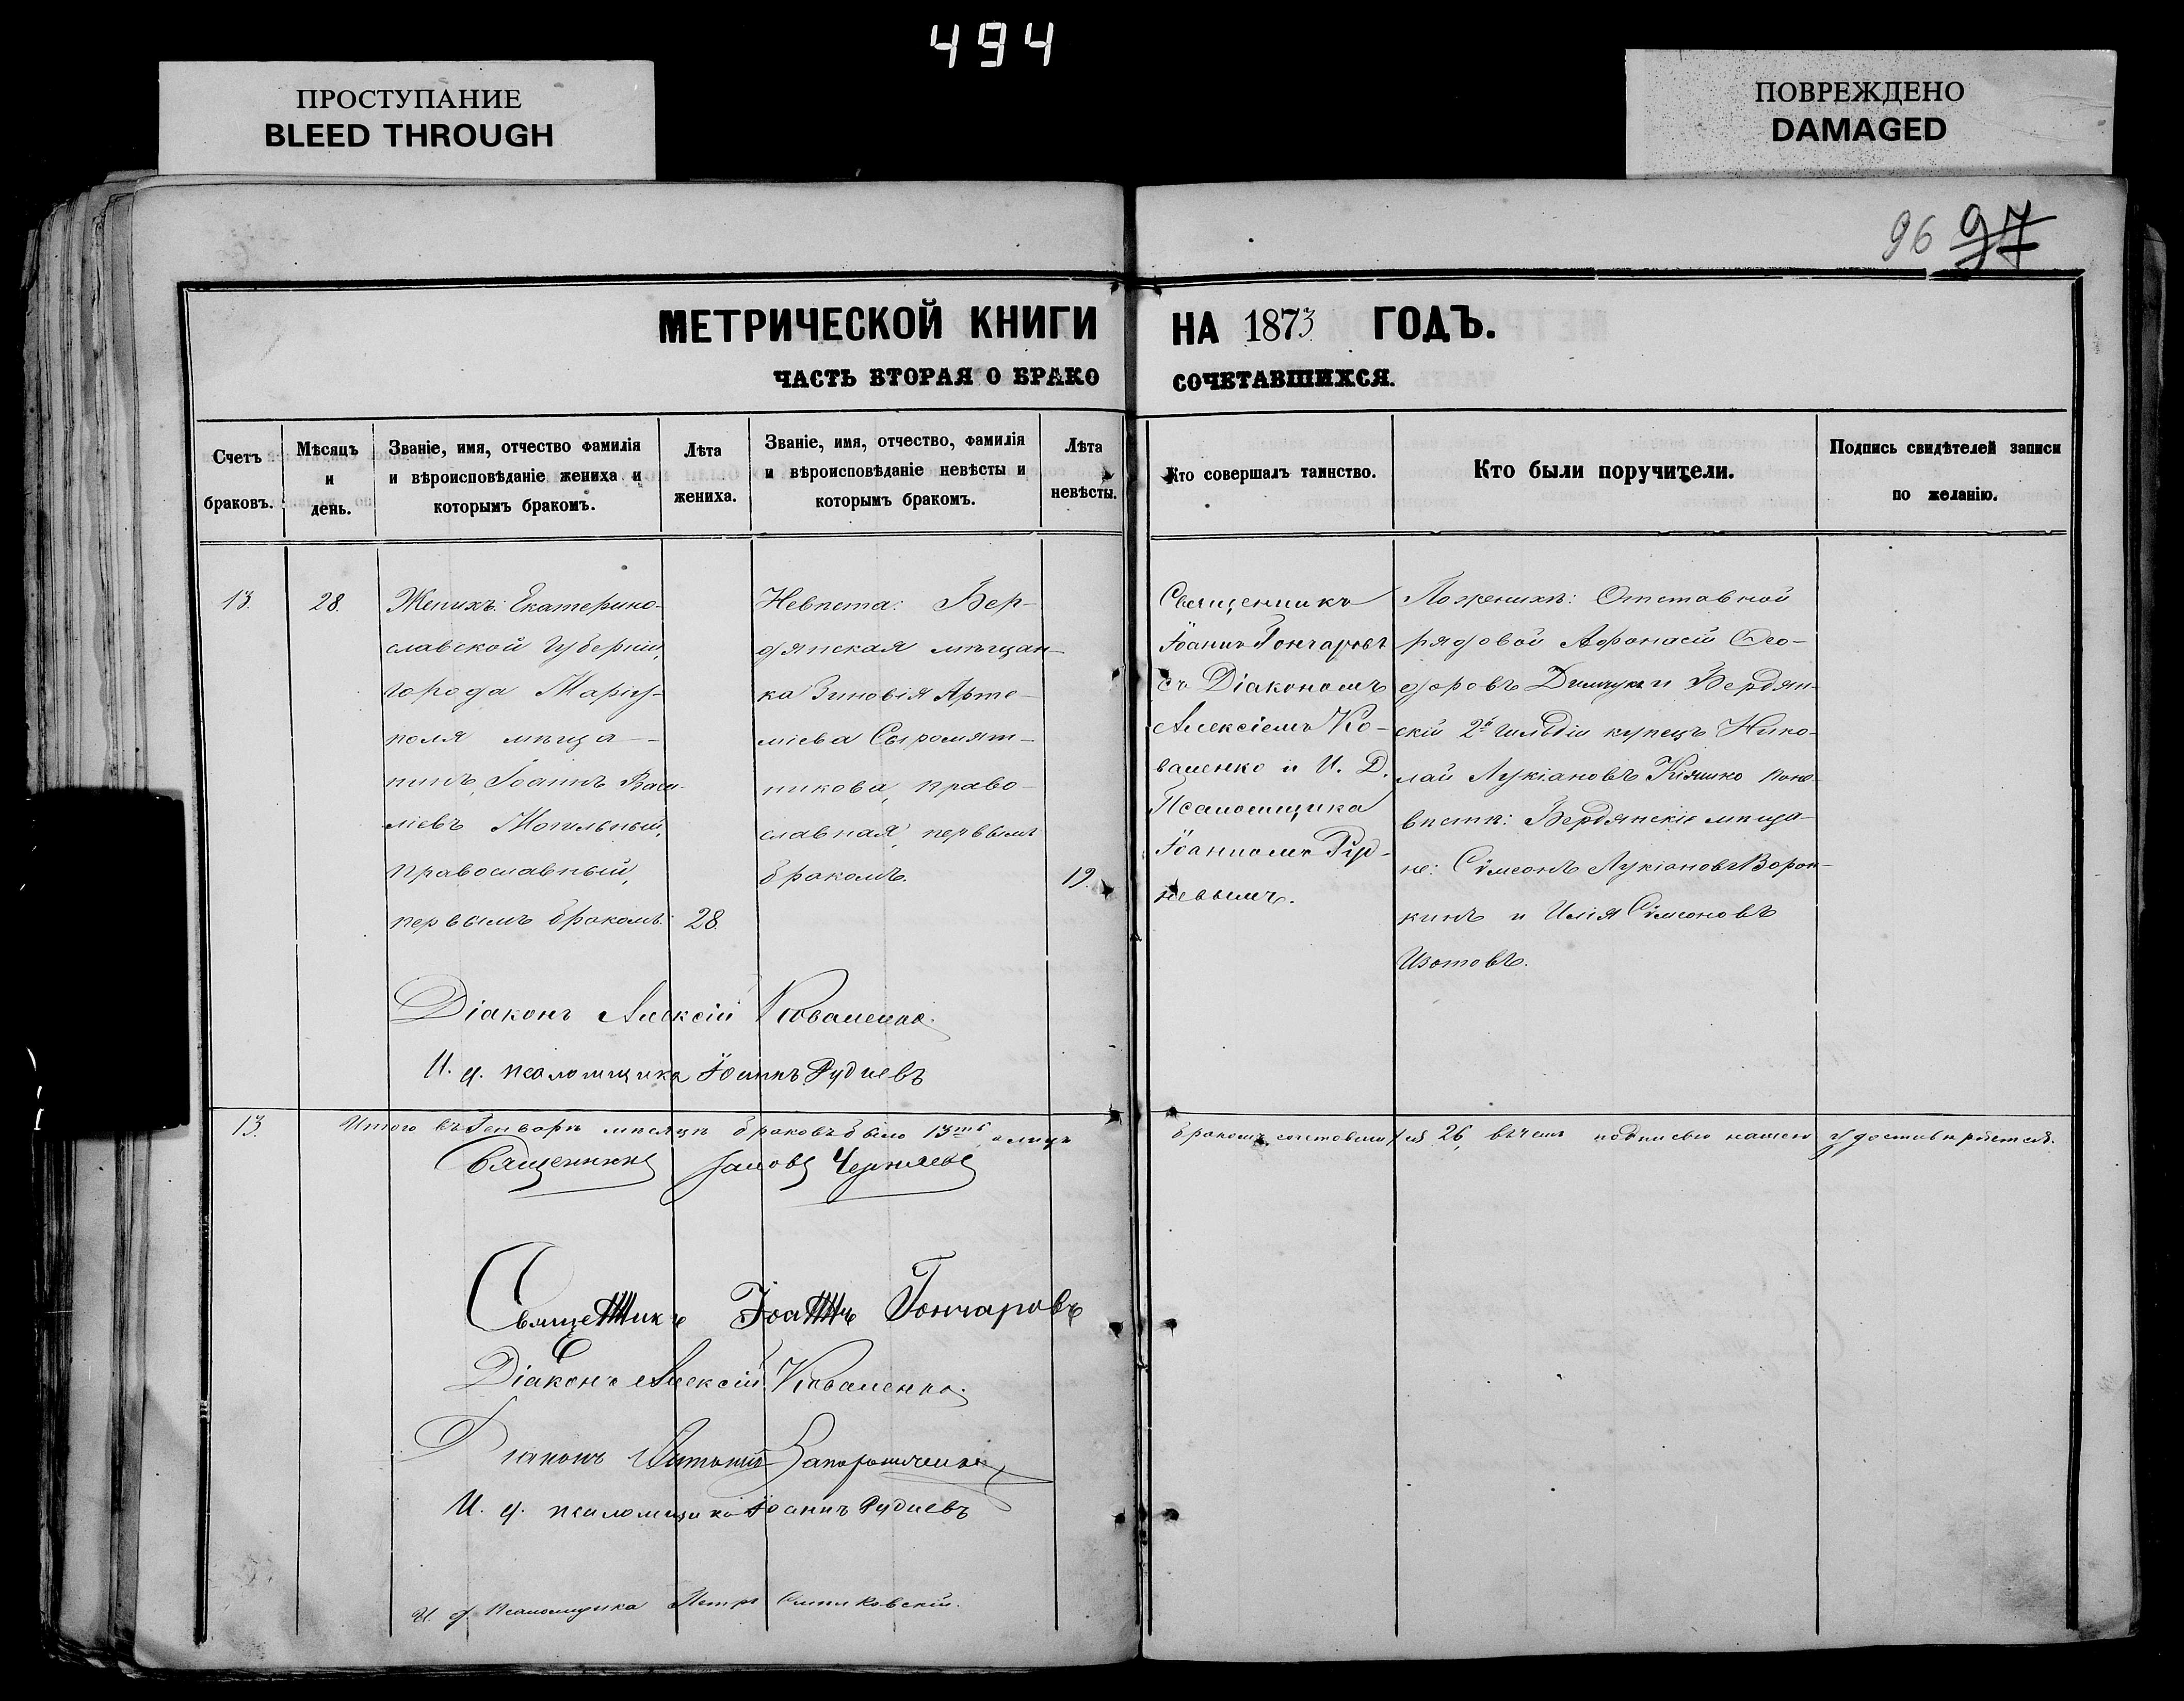 494
ПРОСТУПАНИЕ
BLEED THROUGH
ПОВРЕЖДЕНО
DAMAGED
96 97
МЕТРИЧЕСКОЙ КНИГИ НА 1873 ГОДЪ.
ЧАСТЬ ВТОРАЯ О БРАКОСОЧЕТАВШИХСЯ.
Счетъ
браковъ.
Мѣсяцъ
и
день.
Званіе, имя, отчество фамилія
и вѣроисповѣданіе жениха и
которымъ бракомъ.
Лѣта
жениха.
Званіе, имя, отчество, фамилія
и вѣроисповѣданіе невѣсты и
которымъ бракомъ.
Лѣта
невѣсты.
Кто совершалъ таинство.
Кто были поручители.
Подпись свидѣтелей записи
по желанію.
13.
28.
Женихъ: Екатерино-
славской Губерніи,
города Маріу-
поля мѣща-
нинъ, Іоаннъ Васи-
ліевъ Могильный,
православный,
первымъ бракомъ.
28.
Невѣста: Бер-
дянская мѣщан-
ка Зиновія Арте-
міева Сыромят-
никова, право-
славная, первымъ
бракомъ.
19.
Священникъ
Іоаннъ Гончаровъ
съ Діакономъ
Алексіемъ Ко-
валенко и И. Д.
Псаломщика
Іоанномъ Руд-
невымъ.
По женихѣ: Отставной
рядовой Афонасій Ѳео-
доровъ и Бердян-
скій 2й гильдіи купецъ Нико-
лай Лукіановъ Кіяшко по не-
вѣстѣ: Бердянскіе мѣща-
не: Сѵмеонъ Лукіановъ Ворон-
кинъ и Илія Сѵмеоновъ
Изотовъ.
Діаконъ Алексій Коваленко.
И. д. псаломщика Іоаннъ Рудневъ
13.
Итого въ Генварѣ мѣсяцѣ браковъ было 13ть, а лицъ бракомъ сочетавшихся 26, въ чемъ подписью нашею удостовѣряется.
Священникъ Іаковъ Черняевъ
Священникъ Іоаннъ Гончаровъ
Діаконъ Алексій Коваленко.
Діаконъ Антоній Запорожченко
И. д. псаломщика Іоаннъ Рудневъ
И. д. Псаломщика Петръ